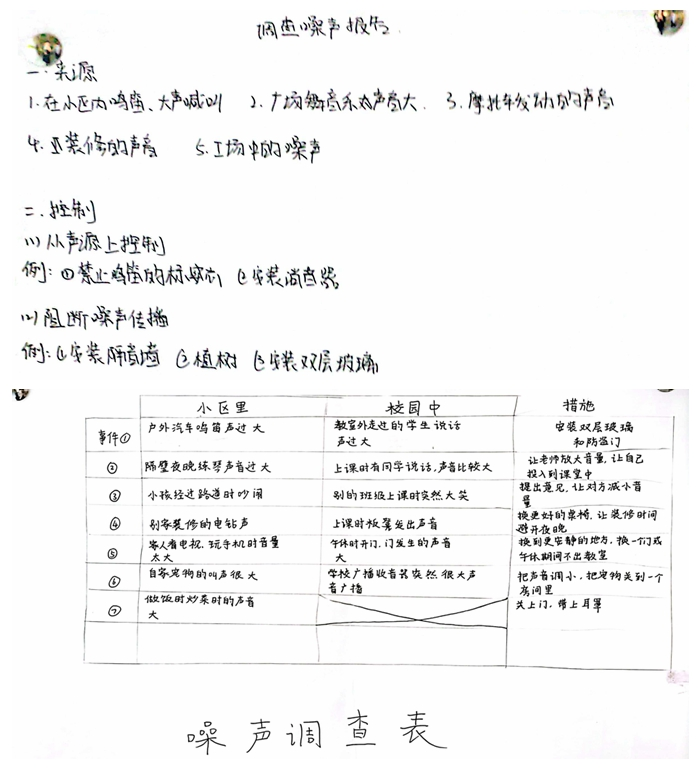 调查噪声报告
一.来源
1.在小区内鸣笛、大声喊叫 2.广场舞音乐的声音大. 3.摩托车发动的声音
4.装修的声音 5.工场中的噪声
二.控制
(1)从声源上控制
例:①禁止鸣笛的标 ②安装消音器
(2)阻断噪声传播
例:①安装隔音墙 ②植树 ③安装双层玻璃
小区里 校园中 措施
事件① 户外汽车鸣笛声过大 教室外走过的学生说话声过大 安装双层玻璃和防盗门
② 隔壁夜晚练琴声音过大 上课时有同学说话,声音比较大 让老师放大音量,让自己投入到课堂中
③ 小孩经过路道时吵闹 别的班级上课时突然大笑 提出意见,让对方减小音量
④ 别家装修的电钻声 上课时板凳发出声音 换更好的桌椅,让装修时间避开夜晚
⑤ 客人看电视,玩手机时音量太大 午休时开门,门发生的声音大 换到更安静的地方,换一个门或午休期间不出教室
⑥ 自家宠物的叫声很大 学校广播收音器突然很大声音广播 把声音调小,把宠物关到一个房间里
⑦ 做饭时炒菜时的声音大 关上门,带上耳罩
噪声调查表